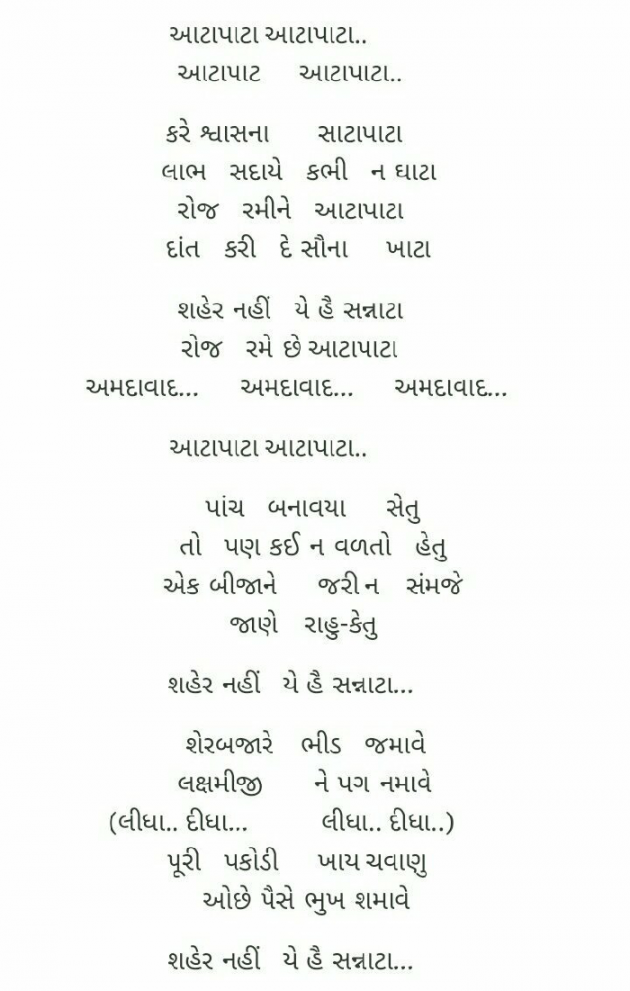 આટાપાટા આટાપાટા..
આટાપાટ આટાપાટા..
કરે શ્વાસના સાટાપાટા
લાભ સદાયે કભી ન ઘાટા
રોજ રમીને આટાપાટા
દાંત કરી દે સૌના ખાટા
શહેર નહીં યે હૈ સન્નાટા
રોજ રમે છે આટાપાટા
અમદાવાદ... અમદાવાદ... અમદાવાદ...
આટાપાટા આટાપાટા..
પાંચ બનાવયા સેતુ
તો પણ કઈ ન વળતો હેતુ
એક બીજાને જરી ન સંમજે
જાણે રાહુ-કેતુ
શહેર નહીં યે હૈ સન્નાટા...
શેરબજારે ભીડ જમાવે
લક્ષમીજી ને પગ નમાવે
(લીધા.. દીધા... લીધા.. દીધા..)
પૂરી પકોડી ખાય ચવાણુ
ઓછે પૈસે ભુખ શમાવે
શહેર નહીં યે હૈ સન્નાટા...